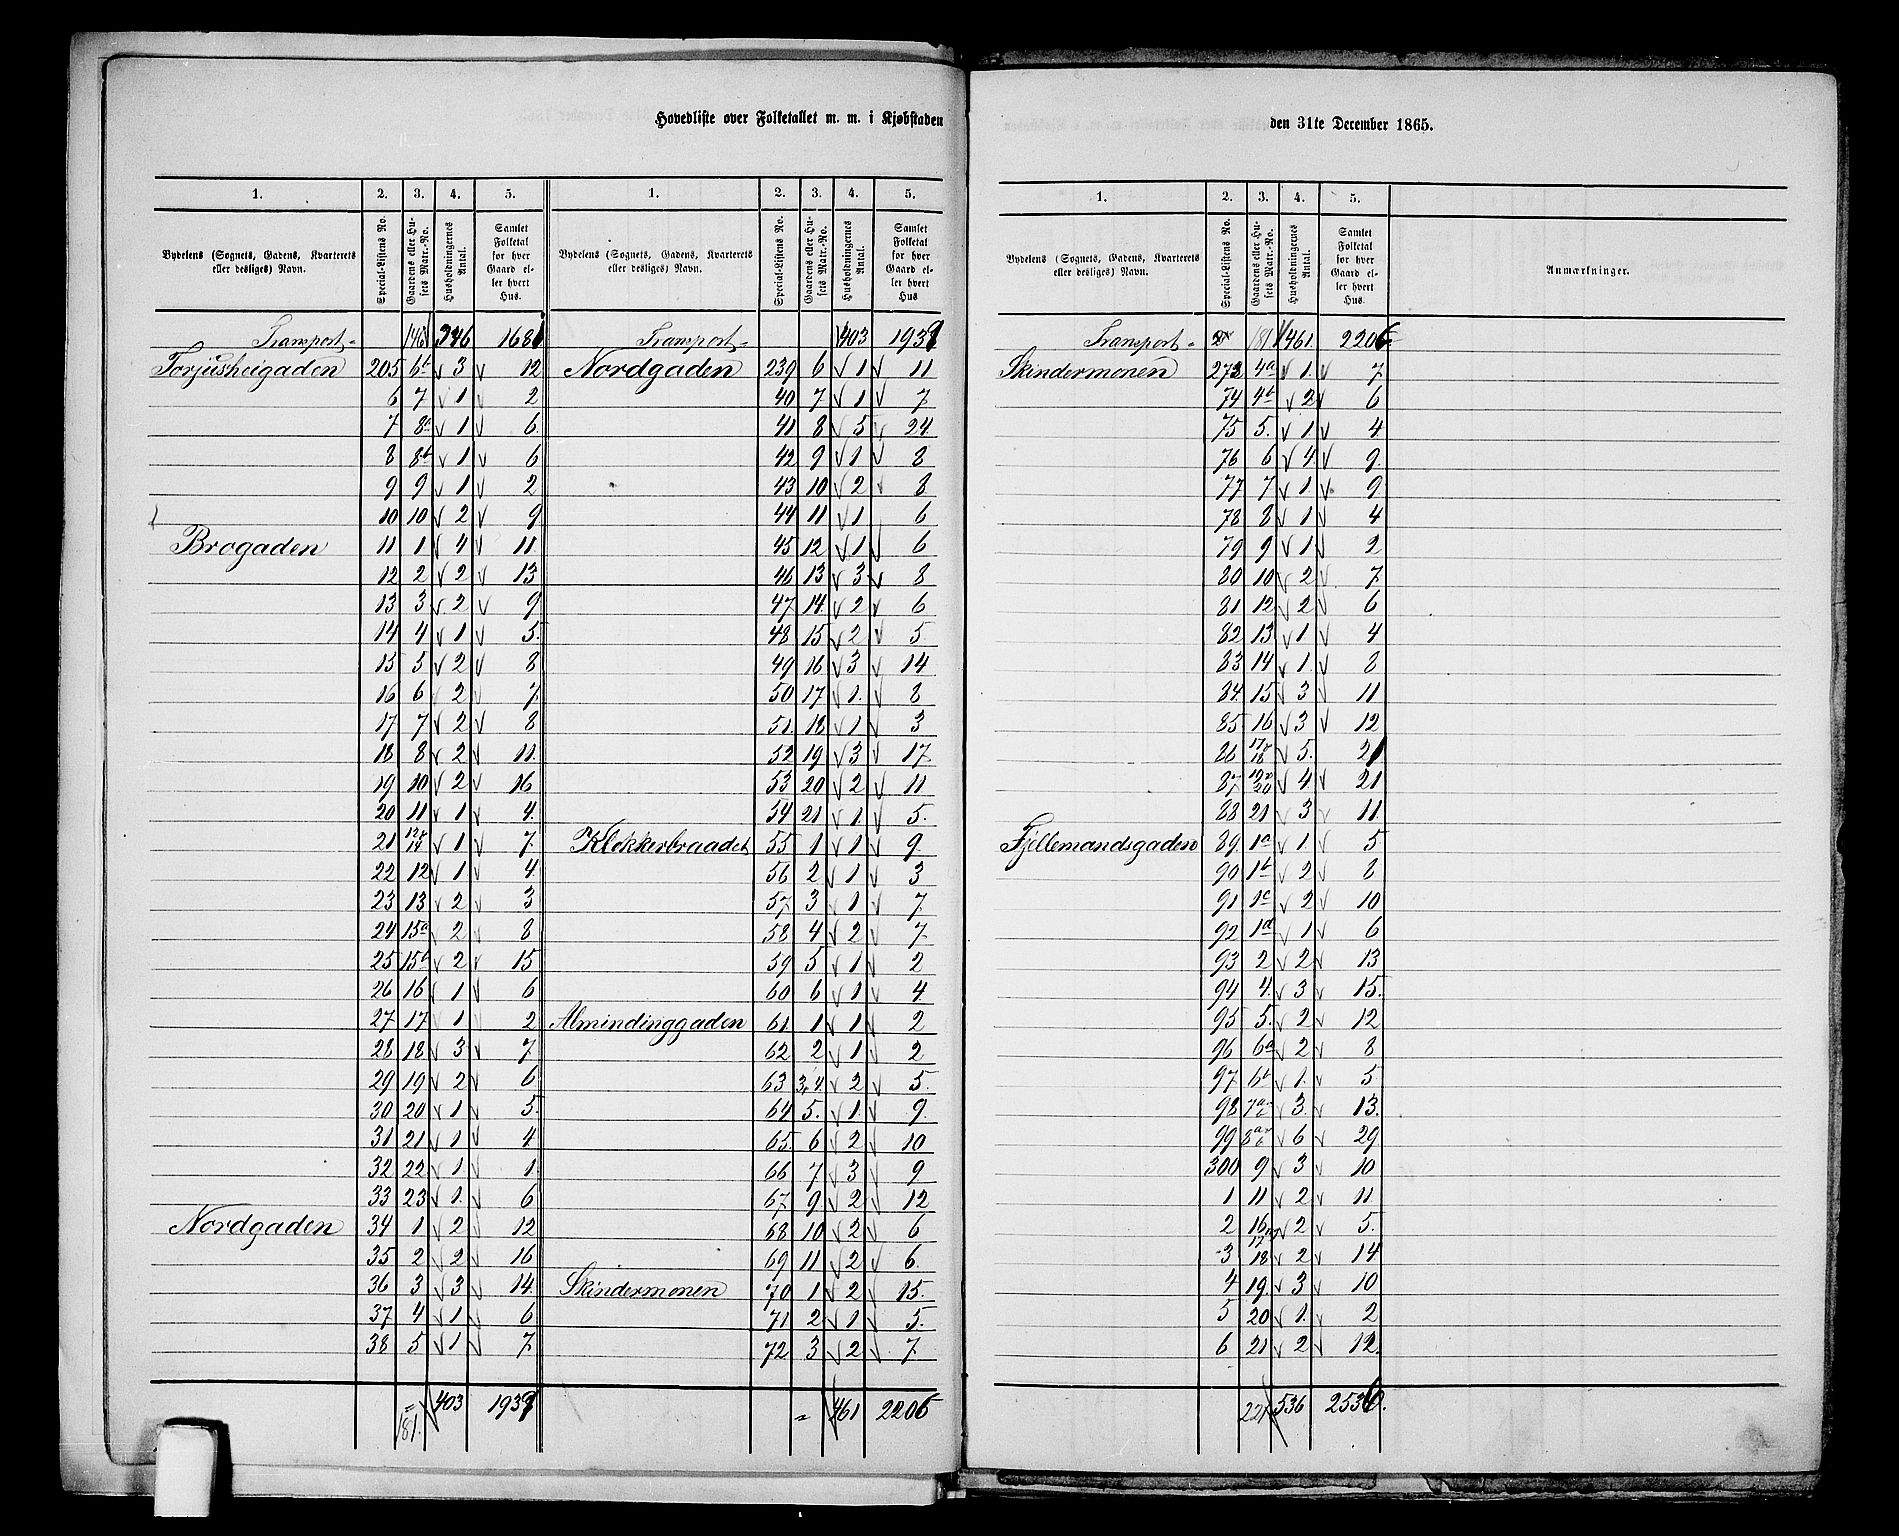 Hovedliste over Folketallet m. m. i Kjøbstaden
1. 2. 3. 4. 5. 1. 2. 3. 4. 5.
Bydelens (Sognets, Gadens, Kvarterets eller desliges) Navn. Special-Listens No. Gaardens eller Husets Matr.-No. Husholdningernes Antal. Samlet Folketal for hver Gaard eller hvert Hus. Bydelens (Sognets, Gadens, Kvarterets eller desliges) Navn. Special-Listens No. Gaardens eller Husets Matr.-No. Husholdningernes Antal. Samlet Folketal for hver Gaard eller hvert Hus
Transport 346 Transport 403
Torjusheigaden 205 6b 3 12 Nordgaden 239 6 1 11
6 7 1 2 40 7 1 7
7 8a 1 6 41 8 5 24
8 8b 1 6 42 9 1 8
9 9 1 2 43 10 2 8
10 10 2 9 44 11 1 6
Brogaden 11 1 4 11 45 12 1 6
12 2 2 13 46 13 3 8
13 3 2 9 47 14 2 6
14 4 1 5 48 15 2 5
15 5 2 8 49 16 3 14
16 6 2 7 50 17 1 8
17 7 2 8 51 18 1 3
18 8 2 11 52 19 3 17
19 10 2 16 53 20 2 11
20 11 1 4 54 21 1 5
21 1 7 Klokkerbraadet 55 1 1 9
22 12 1 4 56 2 1 3
23 13 2 3 57 3 1 7
24 15a 2 8 58 4 2 7
25 15b 2 15 59 5 1 2
26 16 1 6 60 6 1 4
27 17 1 2 Almindinggaden 61 1 1 2
28 18 3 7 62 2 1 2
29 19 2 6 63 3, 4. 2 5
30 20 1 5 64 5 1 9
31 21 1 4 65 6 2 10
32 22 1 1 66 7 3 9
33 23 1 6 67 9 2 12
Nordgaden 34 1 2 12 68 10 2 6
35 2 2 16 69 11 2 6
36 3 3 14 Skindermonen 70 1 2 15
37 4 1 6 71 2 1 5
38 5 1 7 72 3 2 7
181. 403 461
den 31te December 1865.
1. 2. 3. 4. 5.
Bydelens (Sognets, Gadens, Kvarterets eller desliges) Navn. Special-Listens No. Gaardens eller Husets Matr.-No. Husholdningernes Antal. Samlet Folketal for hver Gaard eller hvert Hus. Anmærkninger.
Transport 181 461 2206
Skindermonen 273 4a 1 7
74 4b 2 6
75 5 1 4
76 6 4 9
77 7 1 9
78 8 1 4
79 9 1 2
80 10 2 7
81 12 2 6
82 13 1 4
83 14 1 8
84 15 3 11
85 16 3 12
86 17 & 18 5 21
87 19 & 20 4 21
88 21 3 11
Fjellemandsgaden 89 1a 1 5
90 1b 2 8
91 1c 2 10
92 1d 1 6
93 2 2 13
94 4 3 15
95 5 2 12
96 6a 2 8
97 6b 1 5
98 3 13
99 6 29
300 9 3 10
1 11 2 11
2 16 2 5
3 18 2 14
4 19 3 10
5 20 1 2
6 21 2 12
221 536 2536